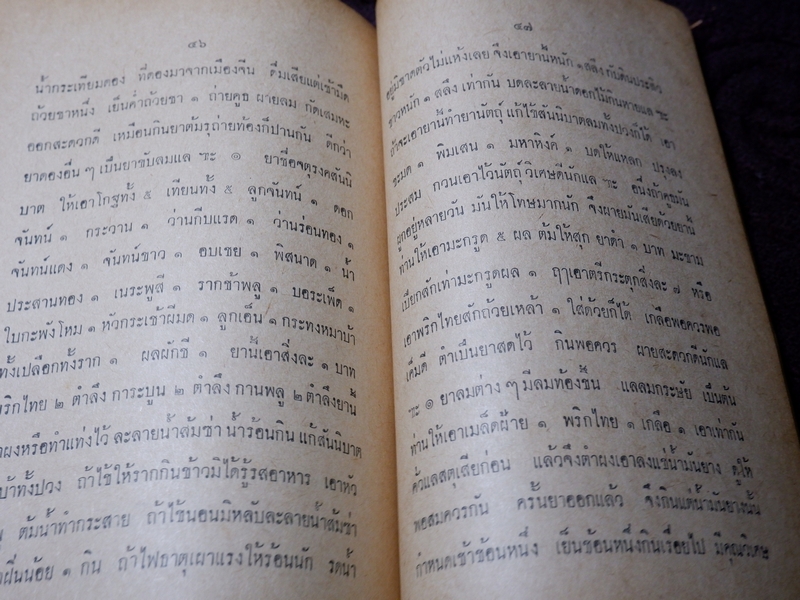 ๔๖
น้ำกระเทียมดอง ที่ดองมาจากเมืองจีน ดื่มเสียแต่เช้ามืด
ถ้วยชาหนึ่ง เย็นค่ำถ้วยชา ๑ ถ่ายคูธ ผายลม กัดเสมหะ
ออกสะดวกดี เหมือนกินยาต้มรุถ่ายท้องก็ปานกัน ดีกว่า
ยาดองอื่น ๆ เป็นยาขับลมแล ฯะ ๏ ยาชื่อจตุรงคสันนิ
บาต ให้เอาโกฐทั้ง ๕ เทียนทั้ง ๕ ลูกจันทน์ ๑ ดอก
จันทน์ ๑ กระวาน ๑ ว่านกีบแรด ๑ ว่านร่อนทอง ๑
จันทน์แดง ๑ จันทน์ขาว ๑ อบเชย ๑ พิสนาด ๑ น้ำ
ประสานทอง ๑ เนระพูสี ๑ รากช้าพลู ๑ บอระเพ็ด ๑
ใบกะพังโหม ๑ หัวกระเช้าผีมด ๑ ลูกเอ็น ๑ กระทงหมาบ้า
ทั้งเปลือกทั้งราก ๑ ผลผักชี ๑ ยานี้เอาสิ่งละ ๑ บาท
พริกไทย ๒ ตำลึง การะบูน ๒ ตำลึง กานพลู ๒ ตำลึงยานี้
ทำผงหรือทำแท่งไว้ ละลายน้ำส้มซ่า น้ำร้อนกิน แก้สันนิบาต
บ้าทั้งปวง ถ้าไข้ให้รากกินข้าวมิได้รู้รสอาหาร เอาหัว
ต้มน้ำทำกระสาย ถ้าไข้นอนมิหลับละลายน้ำส้มซ่า
ฝิ่นน้อย ๑ กิน ถ้าไฟธาตุเผาแรงให้ร้อนนัก รดน้ำ
๔๗
อยู่มิขาดตัวไม่แห้งเลย จึงเอายานี้หนัก ๑ สลึง กับดินประสิว
ขาวหนัก ๑ สลึง เท่ากัน บดละลายน้ำดอกไม้กินหายแล ฯะ
ถ้าจะเอายานี้ทำยานัตถุ์ แก้ไข้สันนิบาตลมทั้งปวงก็ได้ เอา
ชะมด ๑ พิมเสน ๑ มหาหิงค์ ๑ บดให้แหลก ปรุงลง
ประสม กวนเอาไว้นัตถุ์วิเศษดีนักแล ฯะ อนึ่งถ้าคูธมัน
ผูกอยู่หลายวัน มันให้โทษมากนัก จึงผายมันเสียด้วยยานี้
ท่านให้เอามะกรูด ๕ ผล ต้มให้สุก ยาดำ ๑ บาท มะขาม
เปียกสักเท่ามะกรูดผล ๑ ฤๅเอาตรีกระตุกสิ่งละ ๗ หรือ
เอาพริกไทยสักถ้วยเหล้า ๑ ใส่ด้วยก็ได้ เกลือพอควรพอ
เค็มดี ตำเป็นยาสดไว้ กินพอควร ผายสะดวกดีนักแล
ฯะ ๏ ยาลมต่าง ๆ มีลมท้องขึ้น แลลมกระษัย เป็นต้น
ท่านให้เอาเมล็ดฝ้าย ๑ พริกไทย ๑ เกลือ ๑ เอาเท่ากัน
คั่วแลสตุเสียก่อน แล้วจึงตำผงเอาลงแช่น้ำมันยาง ดูให้
พอสมควรกัน ครั้นยาออกแล้ว จึงกินแต่น้ำมันยางนั้น
กำหนดเช้าช้อนหนึ่ง เย็นช้อนหนึ่งกินเรื่อยไป มีคุณวิเศษ